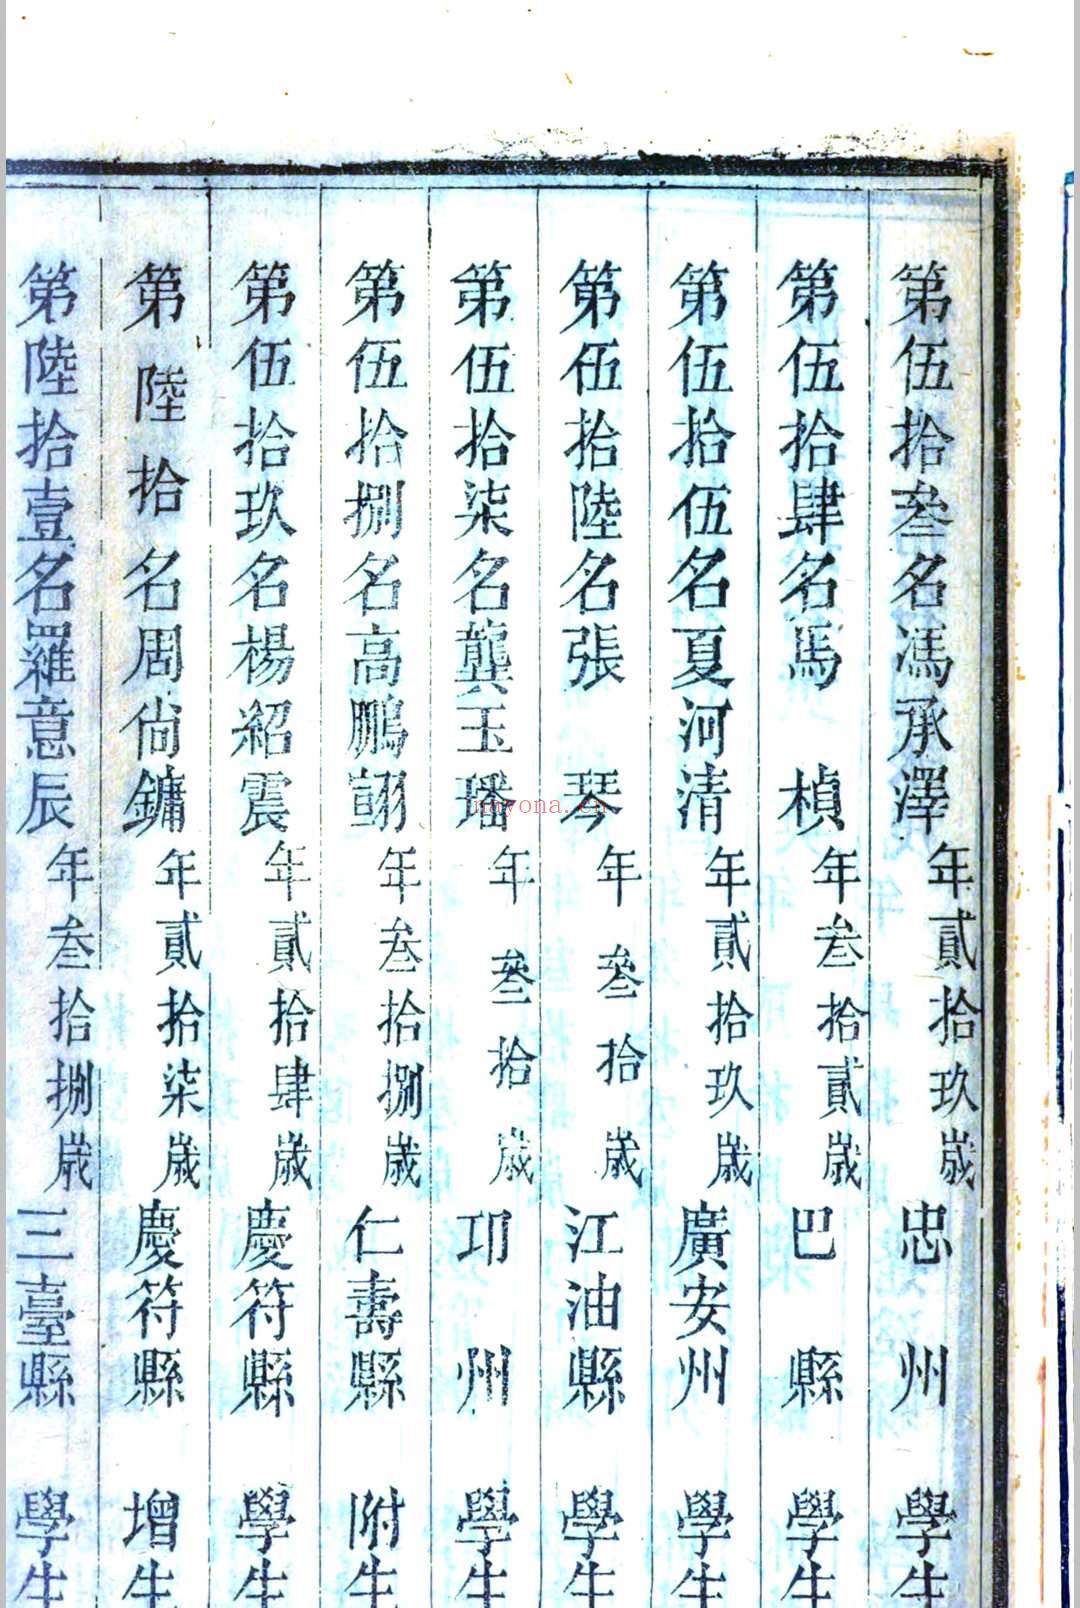 第伍拾叁名馮承澤年貳拾玖歲忠州學生
第伍拾肆名馬楨年叁拾貳歲巴縣學生
第伍拾伍名夏河清年貳拾玖歲廣安州學生
第伍拾陸名張琴年叁拾歲江油縣學生
第伍拾柒名龔玉璠年叁拾歲邛州學生
第伍拾捌名高鵬翮年叁拾捌歲仁壽縣附生
第伍拾玖名楊紹震年貳拾肆歲慶符縣學生
第陸拾名周尙鏞年貳拾柒歲慶符縣增生
第陸拾壹名羅意辰年叁拾捌歲三臺縣學生